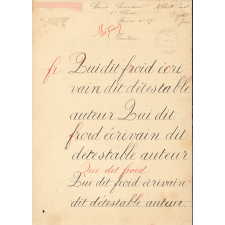 fr Qui dit froid écri
vain dit détestable
auteur Qui dit
froid écrivain dit
détestable auteur
Que dit froid
Qui dit froid écrivain
dit détestable auteur.